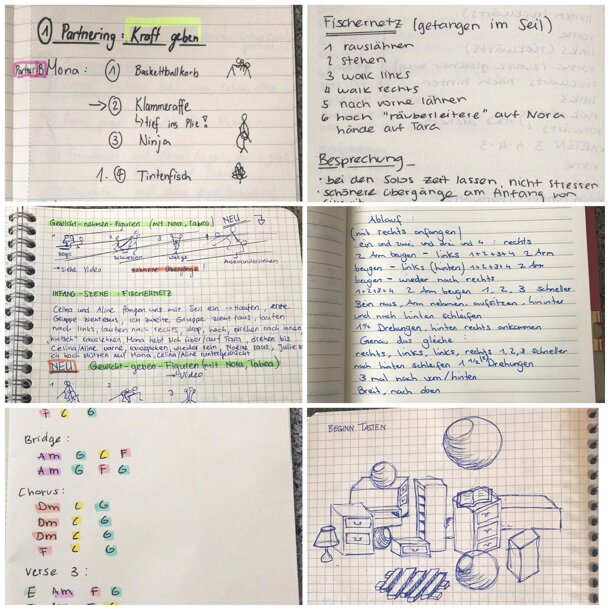 ① Partnering: Kraft geben
Partner B Mona: ① Basketballkorb
→ ② Klammeraffe
↳ tief ins Plie!
③ Ninja
1. ④ Tintenfisch
Fischernetz (gefangen im Seil)
1 rauslähnen
2 stehen
3 walk links
4 walk rechts
5 nach vorne lähnen
6 hoch "räuberleitere" auf Nora
hände auf Tara
Besprechung
• bei den Solos Zeit lassen, nicht stressen
• schönere Übergänge am Anfang von
Gewicht-nehmen-Figuren (mit Nora, Tabea) NEU
→ siehe Video schönere Übergänge!
ANFANG-SZENE: FISCHERNETZ
Celina und Aline fangen uns mit Seil ein → Haufen, erste
Gruppe zieht raus, ich zweite Gruppe zieht raus, laufen
nach links, laufen nach rechts, drop, hoch, drehen nach innen
NEU Gewicht-geben-Figuren (mit Nora, Tabea)
→ Video
Ablauf:
(mit rechts anfangen)
ein und zwei, und drei und 4 : rechts
2 Arm beugen - links 1+2+3+4 2 Arm
beugen - links (hinten) 1+2+3+4 2 Arm
beugen - wieder nach rechts
1+2+3+4 2 Arm beugen 1, 2, 3 schneller
Bein raus, Arm nehmen, aufsitzen, hinunter
und nach hinten schleifen
1½ Drehungen, hinten rechts ankommen
Genau das gleiche:
rechts, links, links, rechts 1, 2, 3 schneller
nach hinten schleifen 1 1/2 Drehungen
3 mal nach vorn/hinten
Breit, nach oben
F C G
Bridge:
Am G C F
Am G F G
Chorus:
Dm C G
Dm C G
Dm C G
F C G
Verse 3:
E Am F G
BEGINN TASTEN